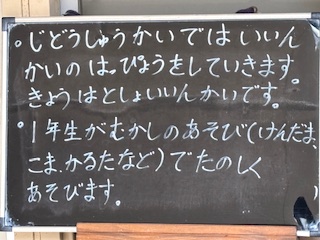 。じどうしゅうかいではいいん
かいのはっぴょうをしていきます。
きょうはとしょいいんかいです。
。1年生がむかしのあそび(けんだま、
こま、かるたなど)でたのしく
あそびます。